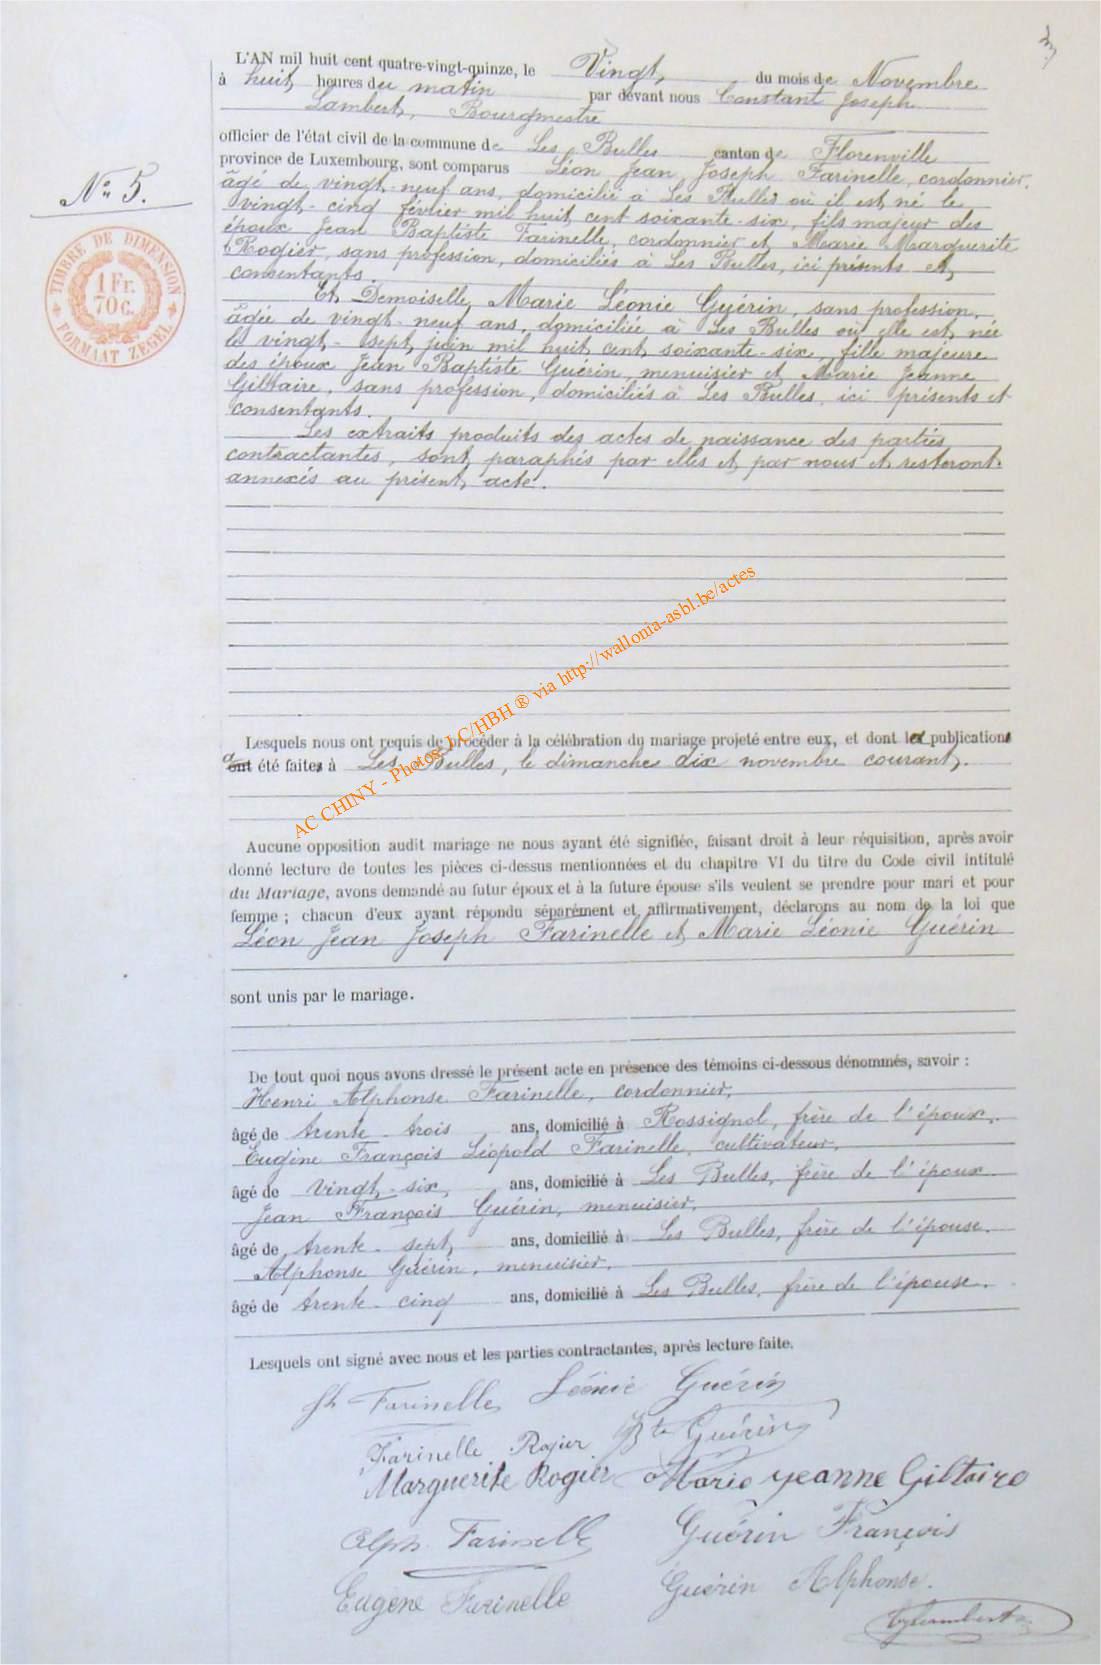 L'AN mil huit cent quatre-vingt-quinze, le Vingt du mois de Novembre
à huit heures du matin par devant nous Constant Joseph
Lambert, Bourgmestre
officier de l'état civil de la commune de Les Bulles canton de Florenville
province de Luxembourg, sont comparus Léon Jean Joseph Farinelle, cordonnier,
âgé de vingt-neuf ans, domicilié à Les Bulles où il est né le
vingt-cinq février mil huit cent soixante-six, fils majeur des
époux Jean Baptiste Farinelle, cordonnier et Marie Marguerite
Rogier, sans profession, domiciliés à Les Bulles, ici présents et
consentants.
Et Demoiselle Marie Léonie Guérin, sans profession,
âgée de vingt-neuf ans, domiciliée à Les Bulles où elle est née
le vingt-sept juin mil huit cent soixante-six, fille majeure
des époux Jean Baptiste Guérin, menuisier et Marie Jeanne
Giltaire, sans profession, domiciliés à Les Bulles, ici présents et
consentants.
Les extraits produits des actes de naissance des parties
contractantes, sont paraphés par elles et par nous et resteront
annexés au présent acte.
N° 5.
TIMBRE DE DIMENSION
1 Fr.
70 c.
FORMAAT ZEGEL
AC CHINY - Photos: LC/HBH ® via http://wallonia-asbl.be/actes
Lesquels nous ont requis de procéder à la célébration du mariage projeté entre eux, et dont la publication
a été faite à Les Bulles, le dimanche dix novembre courant.
Aucune opposition audit mariage ne nous ayant été signifiée, faisant droit à leur réquisition, après avoir
donné lecture de toutes les pièces ci-dessus mentionnées et du chapitre VI du titre du Code civil intitulé
du Mariage, avons demandé au futur époux et à la future épouse s'ils veulent se prendre pour mari et pour
femme ; chacun d'eux ayant répondu séparément et affirmativement, déclarons au nom de la loi que
Léon Jean Joseph Farinelle et Marie Léonie Guérin
sont unis par le mariage.
De tout quoi nous avons dressé le présent acte en présence des témoins ci-dessous dénommés, savoir :
Henri Alphonse Farinelle, cordonnier,
âgé de trente-trois ans, domicilié à Rossignol, frère de l'époux.
Eugène François Léopold Farinelle, cultivateur,
âgé de vingt-six, ans, domicilié à Les Bulles, frère de l'époux.
Jean François Guérin, menuisier,
âgé de trente-sept ans, domicilié à Les Bulles, frère de l'épouse.
Alphonse Guérin, menuisier,
âgé de trente-cinq ans, domicilié à Les Bulles, frère de l'épouse.
Lesquels ont signé avec nous et les parties contractantes, après lecture faite.
Farinelle Léonie Guérin
Farinelle Rogier Bte Guérin
Marguerite Rogier Marie Jeanne Giltaire
Alph. Farinelle Guérin François
Eugène Farinelle Guérin Alphonse.
Lambert